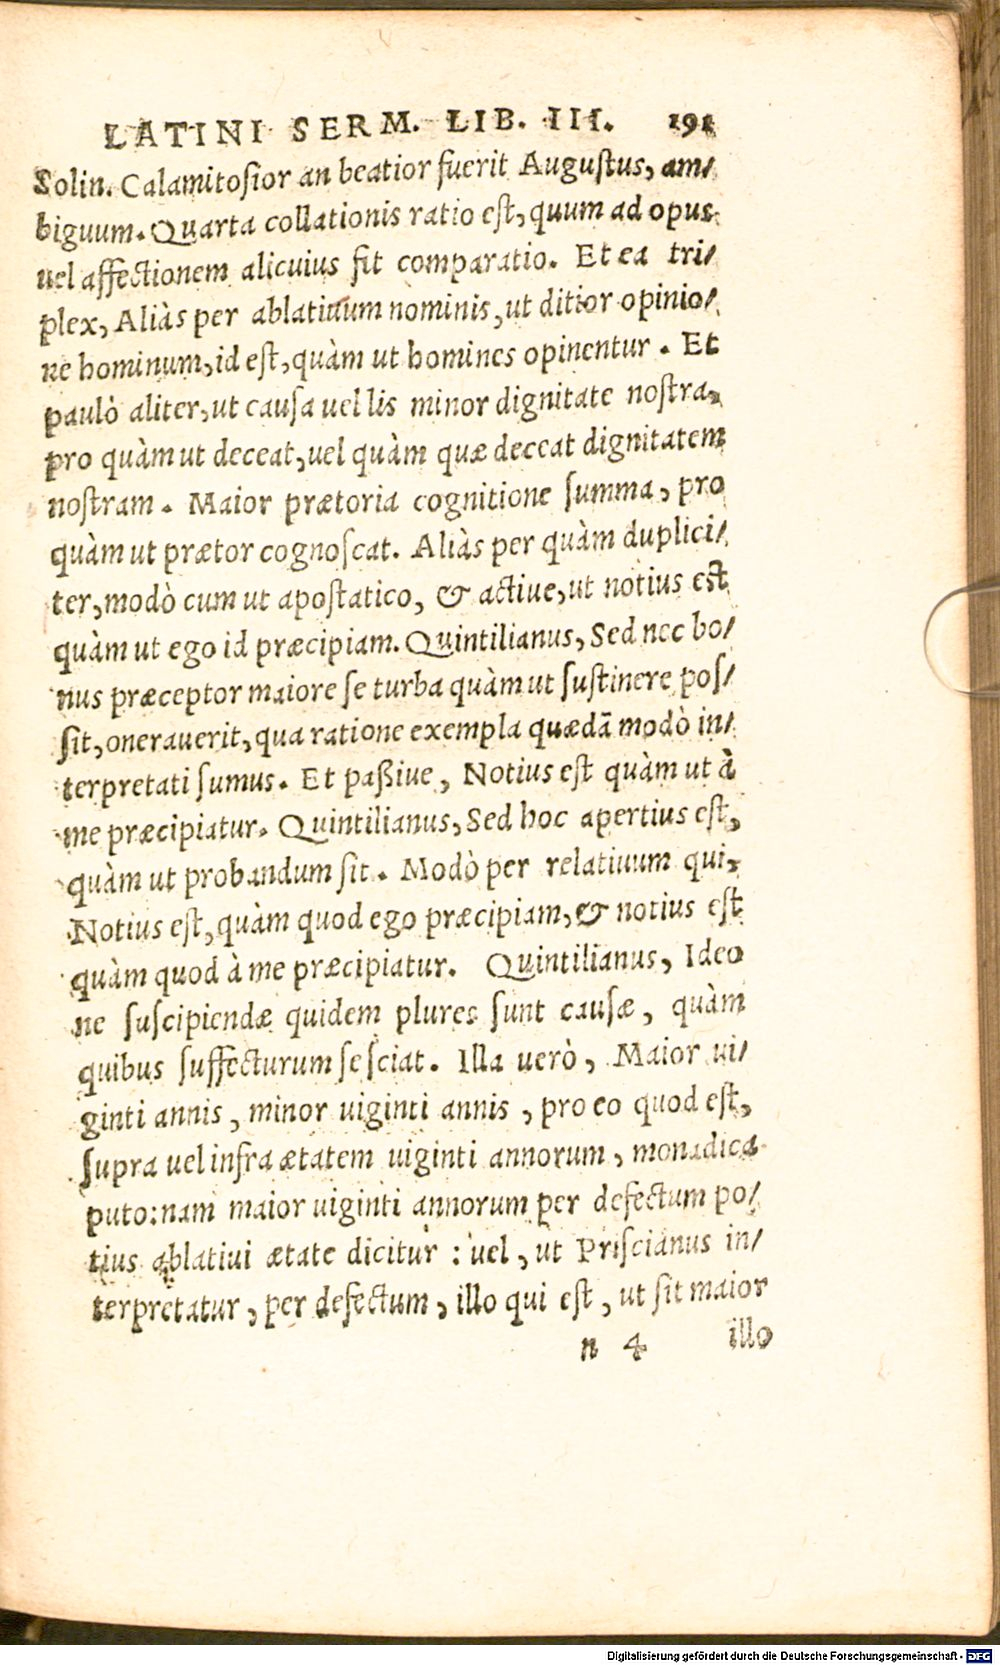 LATINI SERM. LIB. III. 191
Solin. Calamitosior an beatior fuerit Augustus, am/
biguum. Quarta collationis ratio est, quum ad opus
uel affectionem alicuius fit comparatio. Et ea tri/
plex, Aliàs per ablatiuum nominis, ut ditior opinio/
ne hominum, id est, quàm ut homines opinentur. Et
paulò aliter, ut causa uel lis minor dignitate nostra,
pro quàm ut deceat, uel quàm quæ deceat dignitatem
nostram. Maior prætoria cognitione summa, pro
quàm ut prætor cognoscat. Aliàs per quàm duplici/
ter, modò cum ut apostatico, & actiue, ut notius est
quàm ut ego id præcipiam. Quintilianus, Sed nec bo/
nus præceptor maiore se turba quàm ut sustinere pos/
sit, onerauerit, qua ratione exempla quædā modò in/
terpretati sumus. Et paßiue, Notius est quàm ut à
me præcipiatur. Quintilianus, Sed hoc apertius est,
quàm ut probandum sit. Modò per relatiuum qui,
Notius est, quàm quod ego præcipiam, & notius est
quàm quod à me præcipiatur. Quintilianus, Ideo
ne suscipiendæ quidem plures sunt causæ, quàm
quibus suffecturum se sciat. Illa uerò, Maior ui/
ginti annis, minor uiginti annis, pro eo quod est,
supra uel infra ætatem uiginti annorum, monadica
puto: nam maior uiginti annorum per defectum po/
tius ablatiui ætate dicitur: uel, ut Priscianus in/
terpretatur, per defectum, illo qui est, ut sit maior
n 4 illo
Digitalisierung gefördert durch die Deutsche Forschungsgemeinschaft - DFG